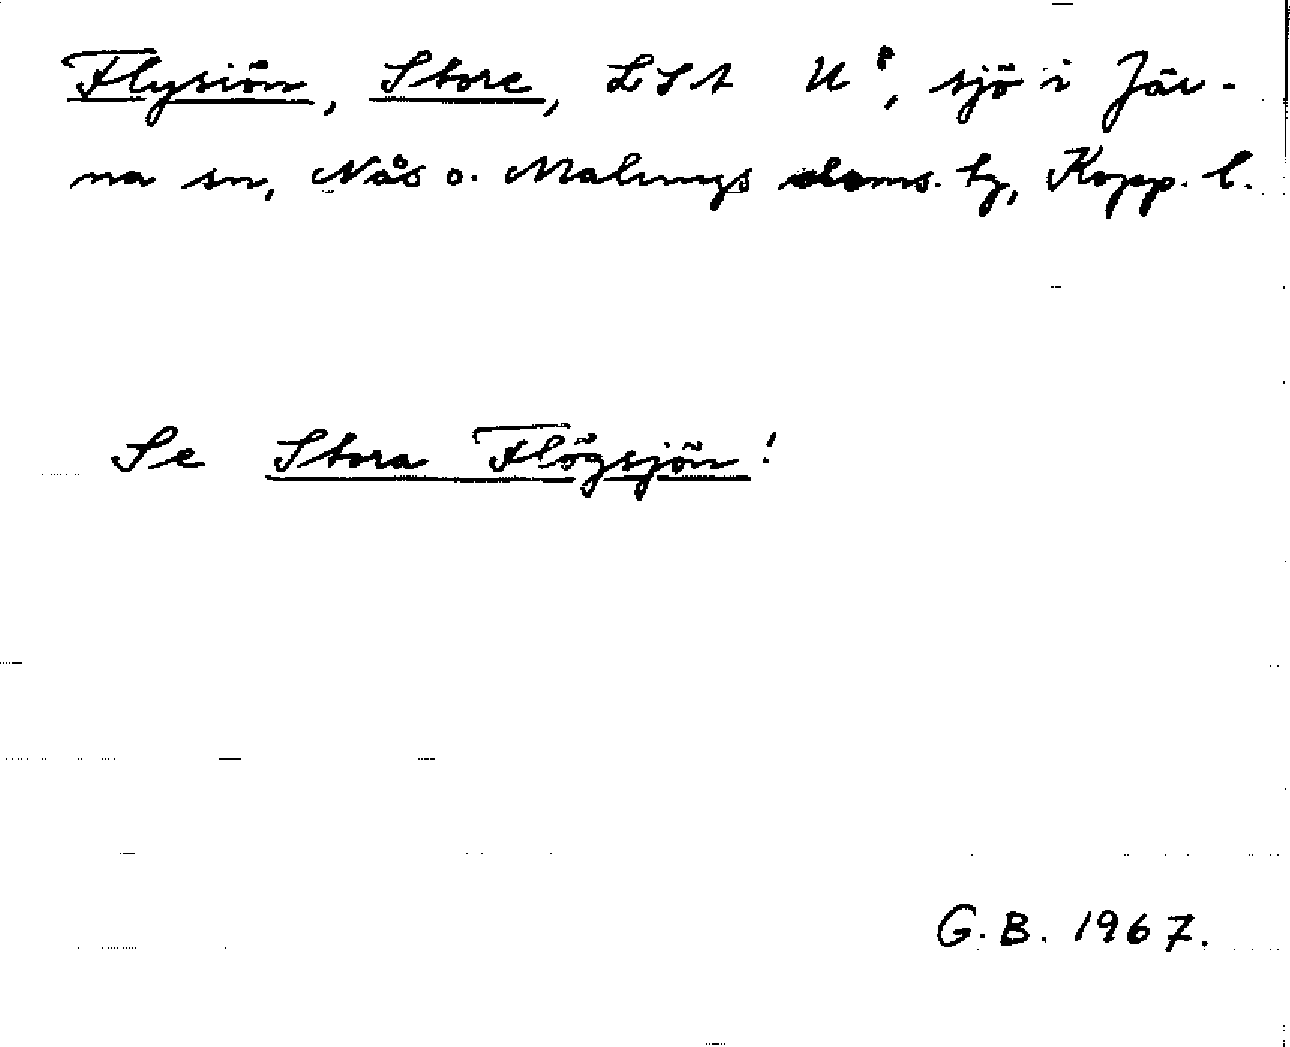 Flysiön, Store, LSA U⁸, sjö i Jär-
na sn, Nås o. Malungs doms. tg, Kopp. l.
Se Stora Flögsjön!
G.B. 1967.